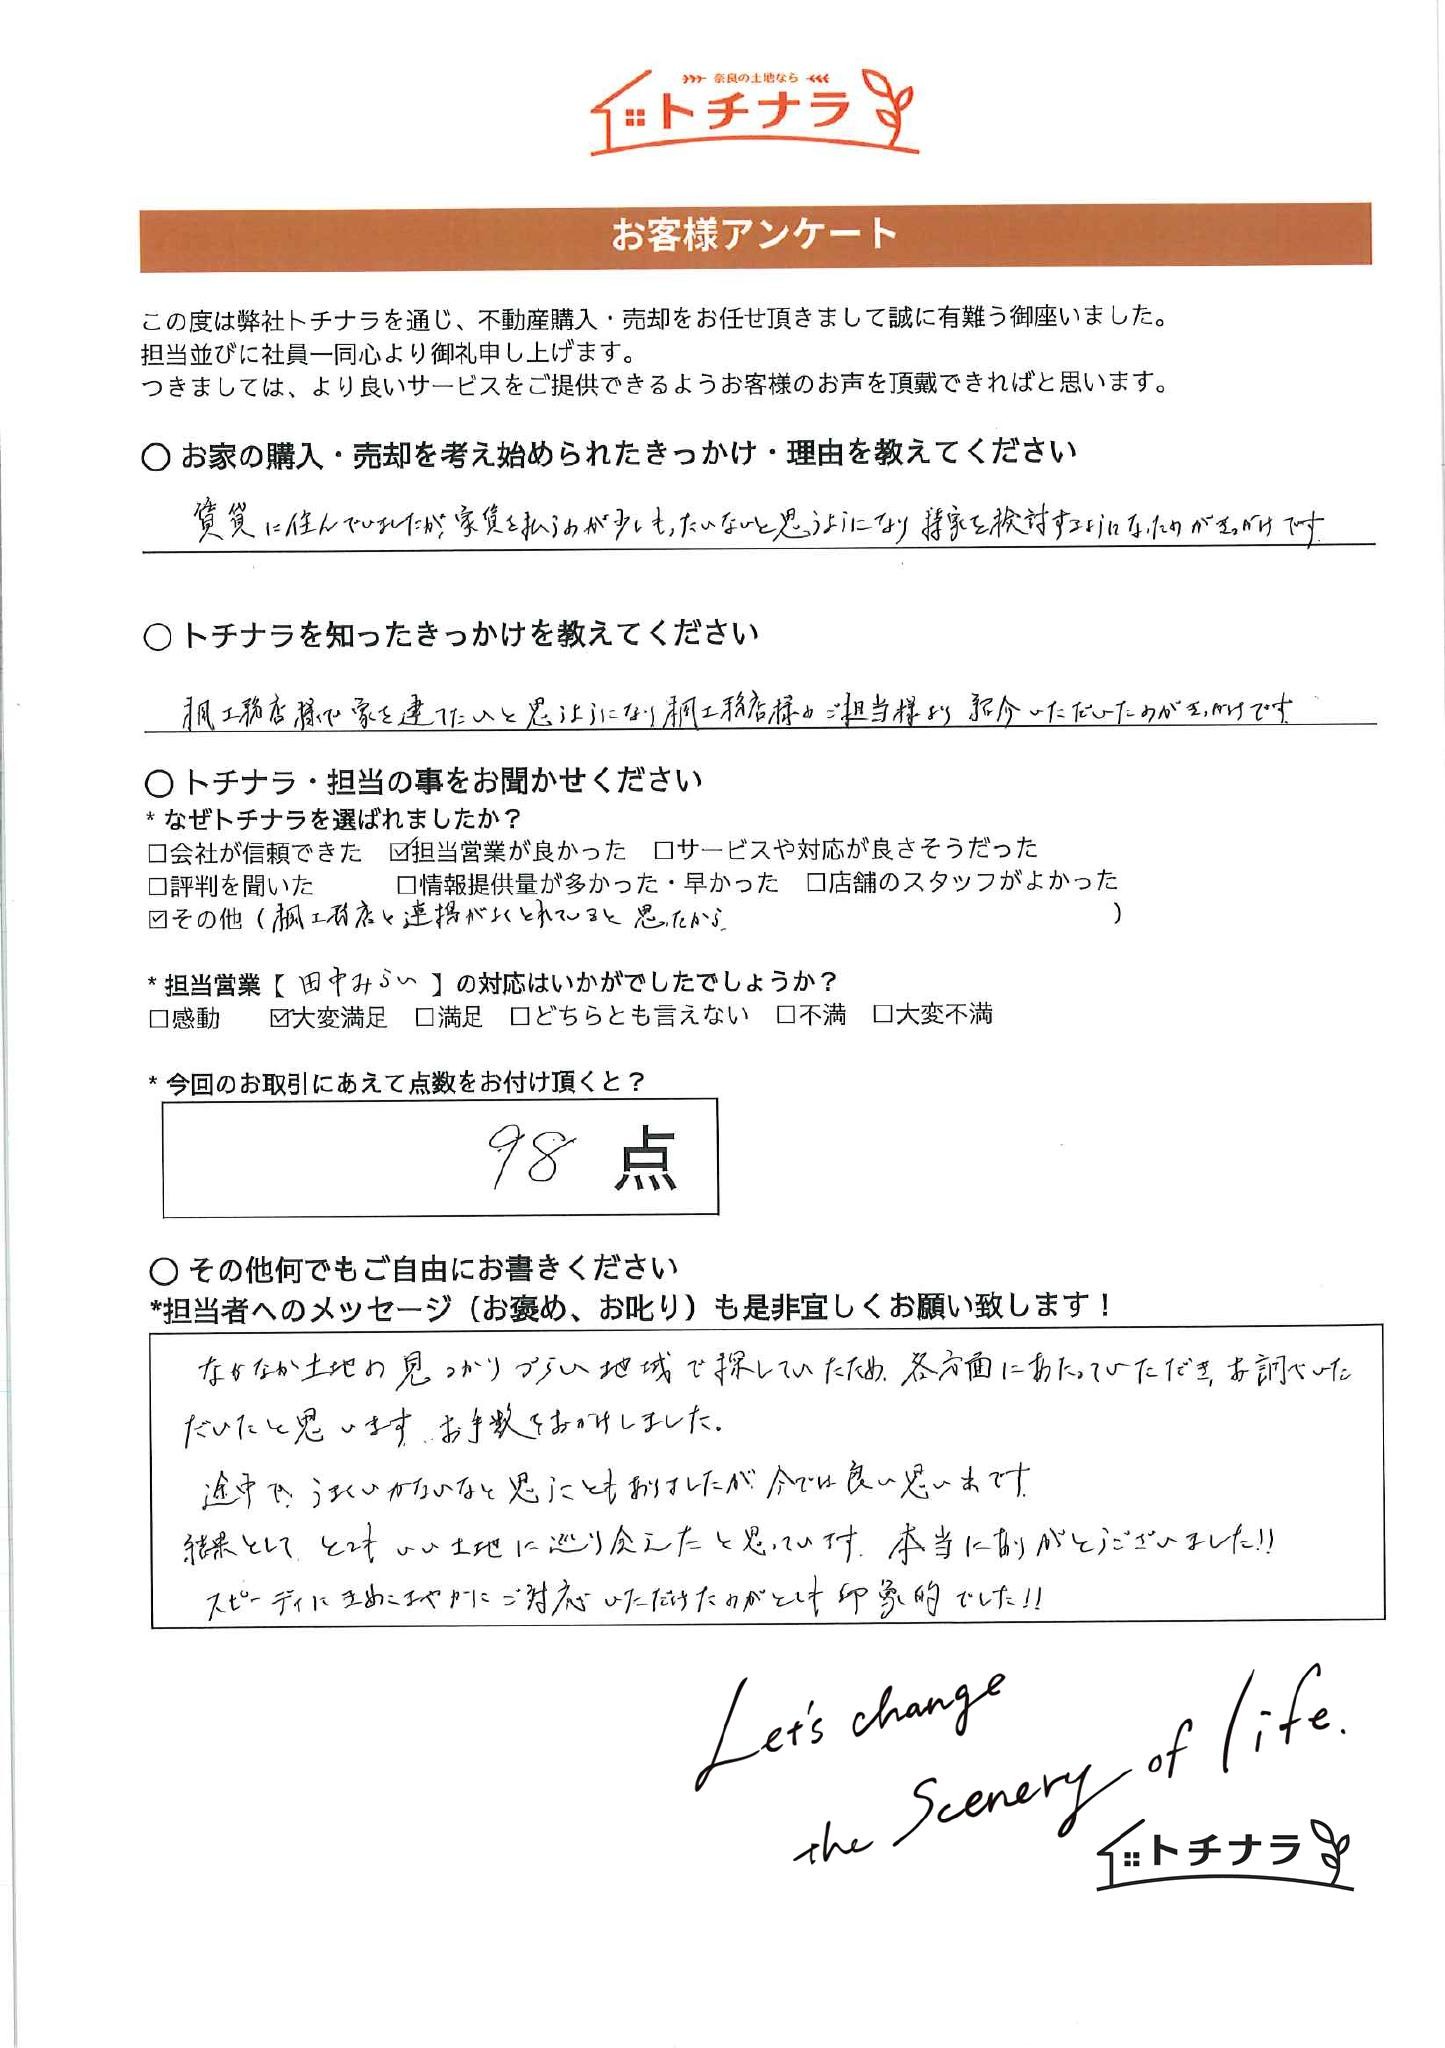 奈良の土地なら
トチナラ
お客様アンケート
この度は弊社トチナラを通じ、不動産購入・売却をお任せ頂きまして誠に有難う御座いました。
担当並びに社員一同心より御礼申し上げます。
つきましては、より良いサービスをご提供できるようお客様のお声を頂戴できればと思います。
○ お家の購入・売却を考え始められたきっかけ・理由を教えてください
賃貸に住んでいましたが、家賃を払うのが少しもったいないと思うようになり 持家を検討するようになったのがきっかけです。
○ トチナラを知ったきっかけを教えてください
工務店様で家を建てたいと思うようになり 工務店様のご担当様より 紹介いただいたのがきっかけです
○ トチナラ・担当の事をお聞かせください
* なぜトチナラを選ばれましたか？
□会社が信頼できた ☑担当営業が良かった □サービスや対応が良さそうだった
□評判を聞いた □情報提供量が多かった・早かった □店舗のスタッフがよかった
☑その他（ 工務店と連携がよくとれていると思ったから。 ）
* 担当営業【 田中みらい 】の対応はいかがでしたでしょうか？
□感動 ☑大変満足 □満足 □どちらとも言えない □不満 □大変不満
* 今回のお取引にあえて点数をお付け頂くと？
98 点
○ その他何でもご自由にお書きください
*担当者へのメッセージ（お褒め、お叱り）も是非宜しくお願い致します！
なかなか土地の見つかりづらい地域で探していたため、各方面にあたっていただき、お調べいた
だいたと思います。お手数をおかけしました。
途中で、うまくいかないなと思うこともありましたが、今では良い思い出です。
結果として、とてもいい土地に巡り会えたと思っています。本当にありがとうございました!!
スピーディにきめこまやかにご対応いただけたのがとても印象的でした!!
Let's change
the Scenery of life.
トチナラ